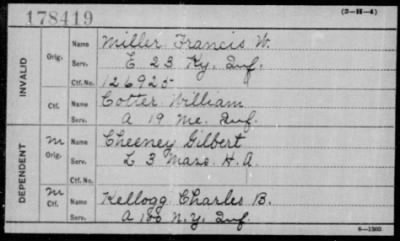 178419
(3-H-4)
INVALID
Orig.
Name Miller Francis W.
Serv. E 23 Ky. Inf.
Ctf. No. 126925
Ctf.
Name Cotter William
Serv. A 19 Me. Inf.
DEPENDENT
M
Orig.
Name Cheeney Gilbert
Serv. L 3 Mass H. A.
Ctf. No.
M
Ctf.
Name Kellogg Charles B.
Serv. A 100 N.Y. Inf.